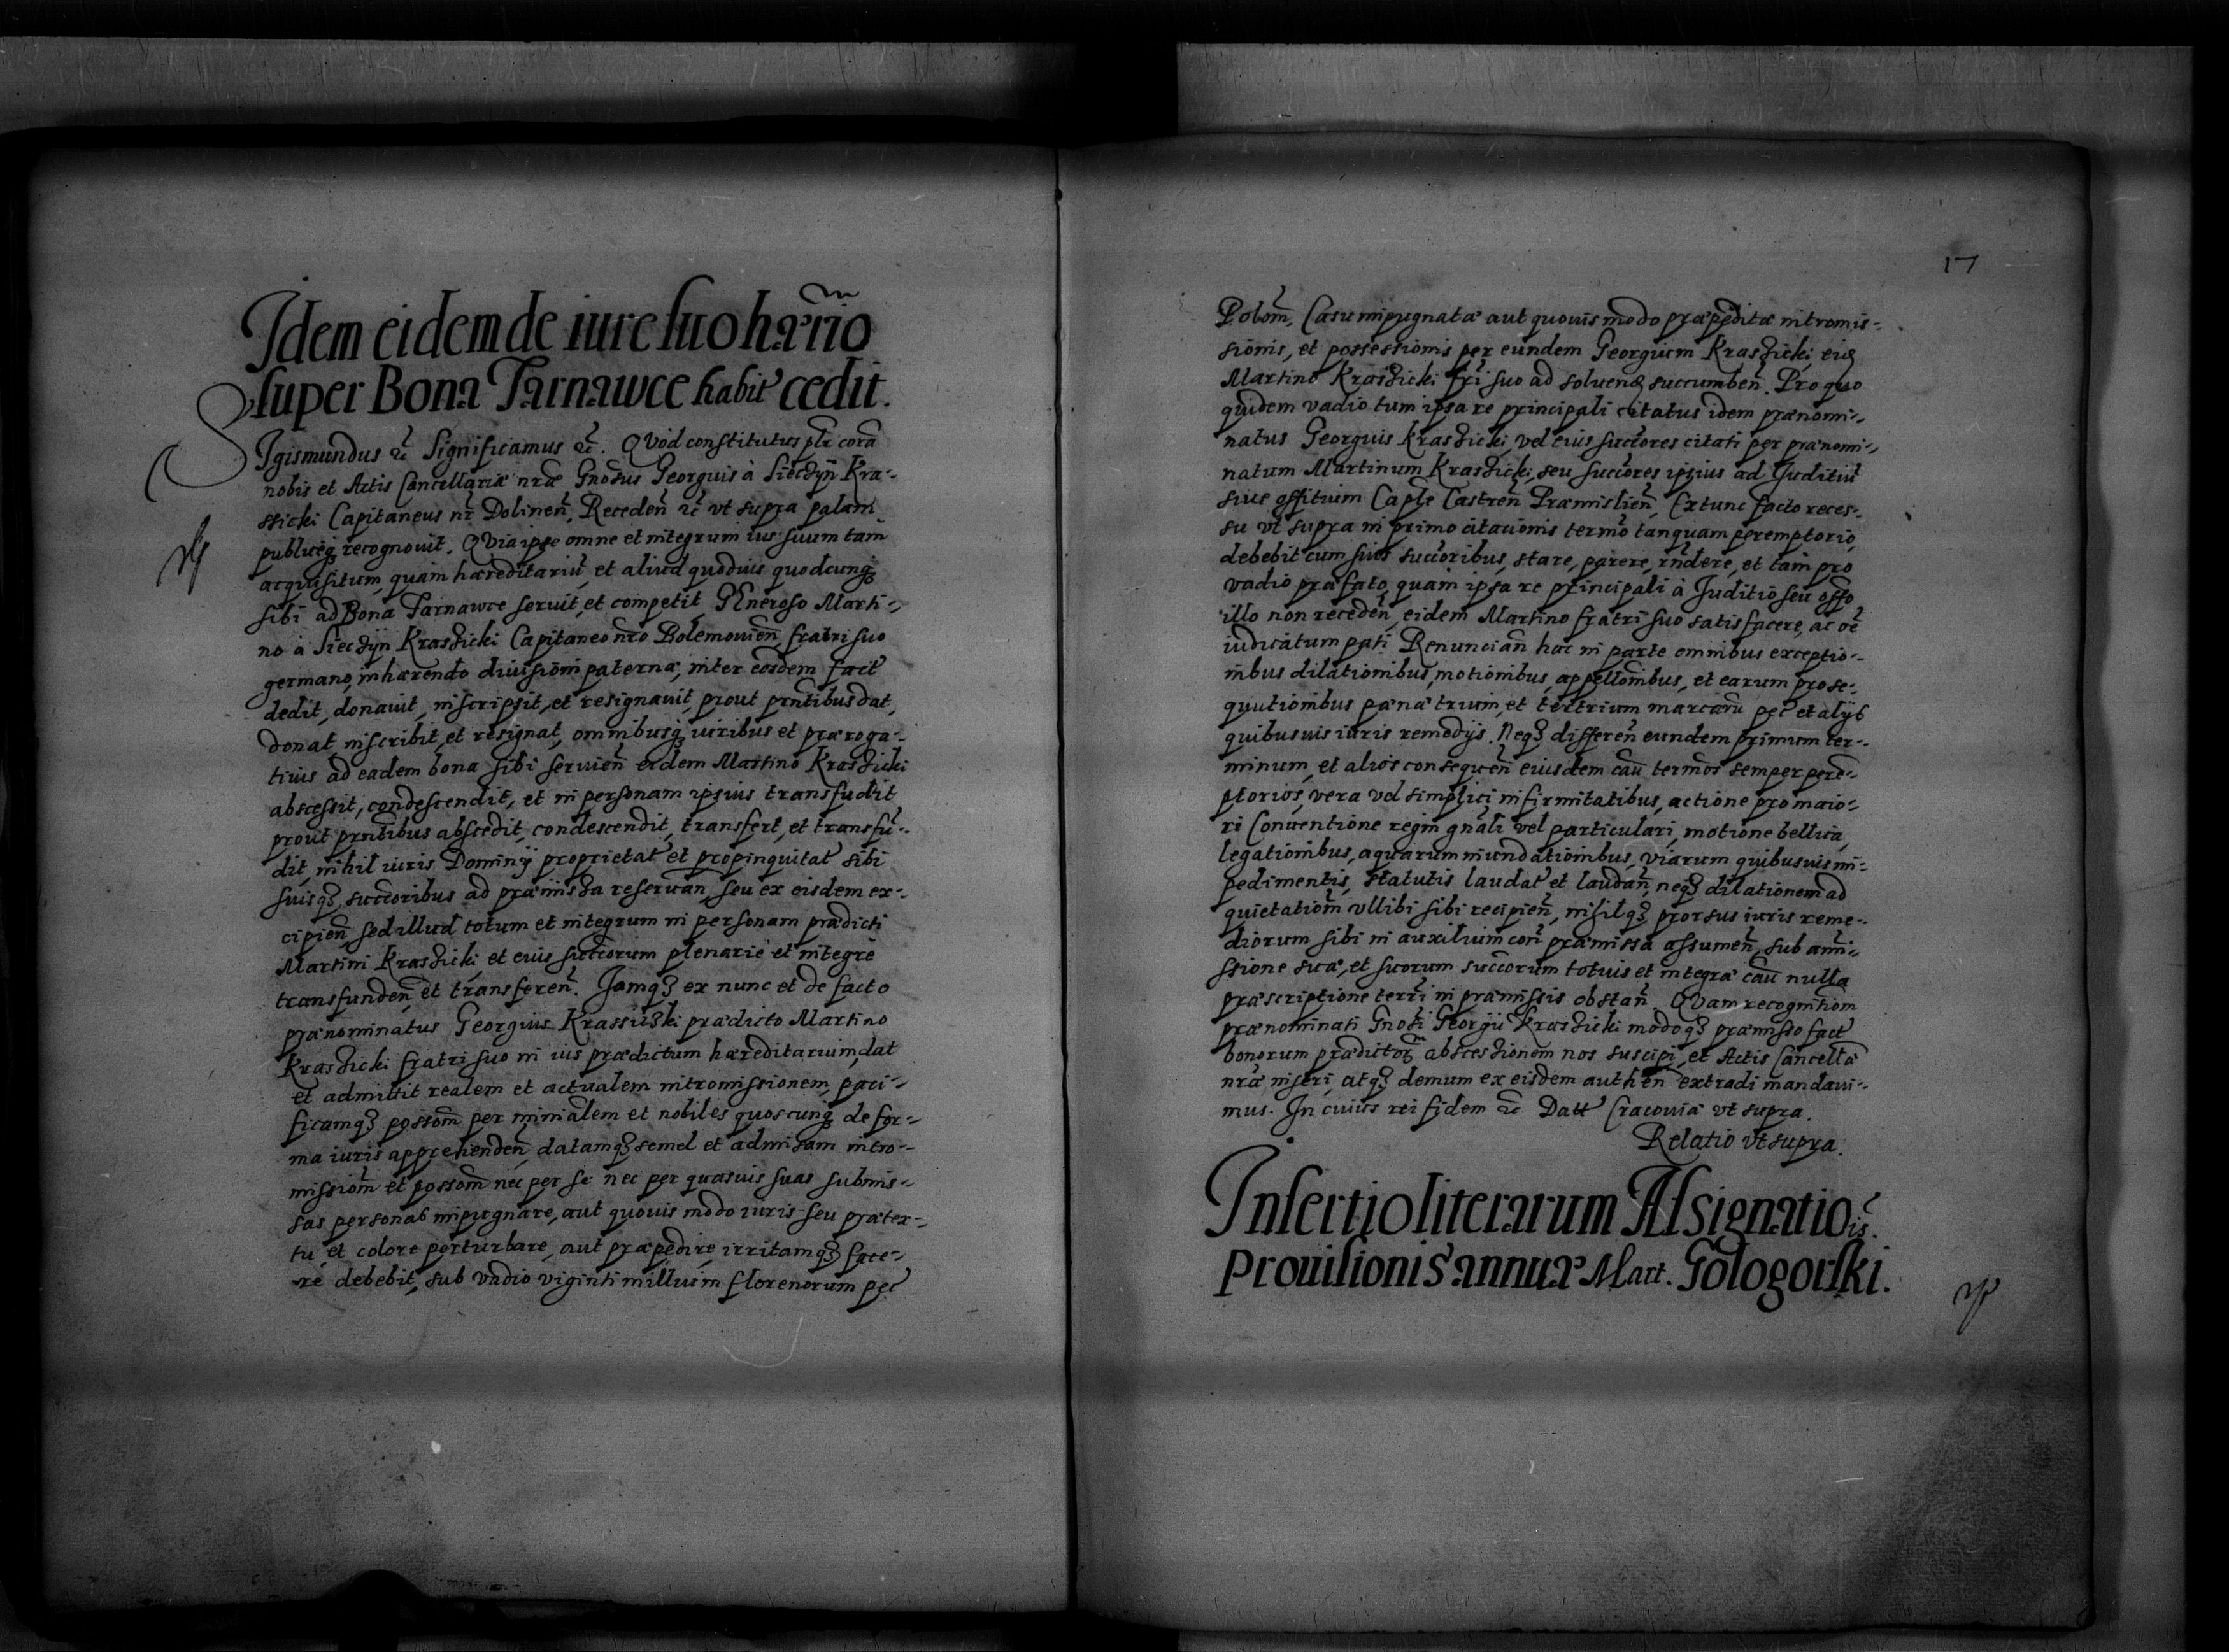 Idem eidem de iure suo hær̃rio
super Bona Tarnawce habit̃ cedit.
SIgismundus ꝛc̃ Significamus ꝛc̃. QVod constitutus plr̃ corã
nobis et Actis Cancellariæ nr̃æ Gnõsus Georgius à Siecżyn̄ Kra-
ssicki Capitaneus nr̃ Dolineñ, Recedeñ ꝛc̃ vt supra palam
publicéqȝ recognouit. QVia ipse omne et integrum ius suum tam
acquisitum, quam hæreditariũ, et aliud quoduis quodcunqȝ
sibi ad Bona Tarnawce seruit, et competit GEneroso Marti-
no à Siecżyn Krasżicki Capitaneo nr̃o Bolemouieñ, fratri suo
germano, inhærendo diuisioñi paternæ, inter eosdem fact̃
dedit, donauit, inscripsit, et resignauit, prout prñtibus dat,
donat, inscribit, et resignat, omnibusqȝ iuribus et præroga-
tiuis ad eadem bona sibi seruieñ eidem Martino Krasżicki
abscessit, condescendit, et in personam ipsius transfudit
prout prñtibus abscedit, condescendit, transfert, et transfu-
dit, nihil iuris Dominij proprietat̃ et propinquitat̃ sibi
suisqȝ succ̃oribus ad præmissa reseruañ, seu ex eisdem ex-
cipieñ, sed illud totum et integrum in personam prædicti
Martini Krasżicki, et eius succ̃orum plenariè et integrè
transfundeñ, et transfereñ. Jamqȝ ex nunc et de facto
prænominatus Georgius Krassiczki prædicto Martino
Krasżicki fratri suo in ius prædictum hæreditarium, dat
et admittit realem et actualem intromissionem, paci-
ficamqȝ possom̃ per minĩalem et nobiles quoscunqȝ de for-
ma iuris apprehendeñ, datamqȝ semel et admissam intro-
missiom̃ et possom̃ nec per se nec per quasuis suas submis-
sas personas impugnare, aut quouis modo iuris seu prætex-
tu, et colore perturbare, aut præpedire, irritamqȝ face-
re debebit, sub vadio viginti millium florenorum pec̃
17
Polom̃, Casu impugnatæ aut quouis modo præpeditæ intromis-
sionis, et possessionis per eundem Georgium Krasżicki, eidẽ
Martino Krasżicki fr̃i suo ad soluendũ succumbeñ. Pro quo
quidem vadio tum ipsa re principali citatus idem prænomi-
natus Georgius Krasżicki, vel eius succ̃ores citati per prænomi-
natum Martinum Krasżicki, seu succ̃ores ipsius ad Juditiũ
siue offitium Caple Castreñ Præmislieñ, Extunc facto reces-
su vt supra in primo citationis termõ tanquam peremptorio,
debebit cum suis succ̃oribus, stare, parere, rñdere, et tam pro
vadio præfato, quam ipsa re principali à Juditio seu offo
illo non recedeñ, eidem Martino fratri suo satisfacere, ac oẽ
iudicatum pati Renunciañ hac in parte omnibus exceptio-
nibus dilationibus, motionibus, appellom̃ibus, et earum prose-
quutionibus pœnæ trium, et tertrium marcarũ pec̃ et alijs
quibusuis iuris remedijs. Neqȝ differeñ eundem primum ter-
minum, et alios consequeñ eiusdem cãu termõs semper perẽ-
ptorios, vera vel simplici infirmitatibus, actione pro maio-
ri Conuentione regim̃ gnãli vel particulari, motione bellica,
legationibus, aquarum inundationibus, viarum quibusuis im-
pedimentis, statutis laudat̃ et laudañ, neqȝ dilationem ad
quietatiom̃ vllibi sibi recipieñ, nihilqȝ prorsus iuris reme-
diorum sibi in auxilium con̄ præmissa assumeñ, sub ami-
ssione suæ, et suorum succ̃orum totius et integræ cãu nulla
præscriptione terrĩ in præmissis obstañ. QVam recognitiom̃
prænominati Gnõsi Georgij Krasżicki modoqȝ præmisso fact̃
bonorum prædictorũ abscessionem nos suscipi, et Actis Cancellã
nr̃æ inseri, atqȝ demum ex eisdem authen̄ extradi mandaui-
mus. In cuius rei fidem ꝛc̃ Datt̃ Cracouiæ vt supra.
Relatio vt supra.
Insertio literarum Assignatioĩs
Prouisionis annuæ Mart. Gologorski.